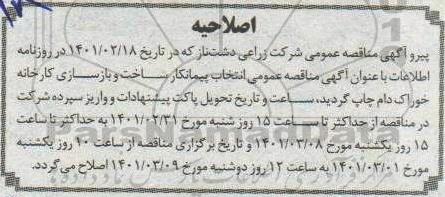 اصلاحیه
پیرو آگهی مناقصه عمومی شرکت زراعی دشت‌ناز که در تاریخ ۱۴۰۱/۰۲/۱۸ در روزنامه
اطلاعات با عنوان آگهی مناقصه عمومی انتخاب پیمانکار ساخت و بازسازی کارخانه
خوراک دام چاپ گردید، ساعت و تاریخ تحویل پاکت پیشنهادات و واریز سپرده شرکت
در مناقصه از حداکثر تا ساعت ۱۵ روز شنبه مورخ ۱۴۰۱/۰۲/۳۱ به حداکثر تا ساعت
۱۵ روز یکشنبه مورخ ۱۴۰۱/۰۳/۰۸ و تاریخ برگزاری مناقصه از ساعت ۱۰ روز یکشنبه
مورخ ۱۴۰۱/۰۳/۰۱ به ساعت ۱۲ روز دوشنبه مورخ ۱۴۰۱/۰۳/۰۹ اصلاح می‌گردد.
ParsNamadData